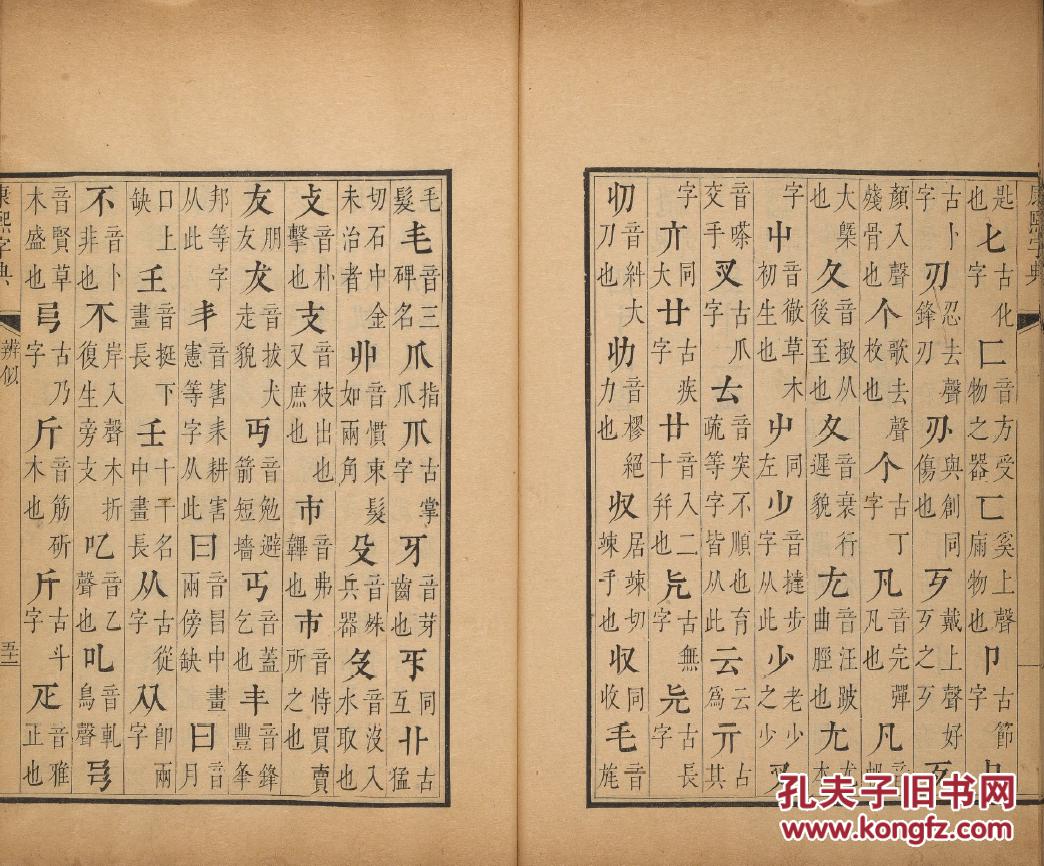 康熙字典
匙也 𠤎 古化字 匚 音方受物之器 匸 奚上聲物也 卩 古節字
古卜字 刃 忍去聲鋒刃 刅 與創同傷也 歹 戴上聲好歹之歹 歺
顏入聲殘骨也 个 歌去聲枚也 个 古丁字 凡 音完彈凡也 凡 音
大槩也 久 音从後至也 夊 音衰行遲貌 尢 音汪跛曲脛也 尤 尤本
字 屮 音徹草木初生也 屮 同左 少 音撻步字从此 少 老少之少 叉
音嗏交手 叉 古爪字 𠫓 音突不順也育疏等字皆从此 云 音云爲 亓 古其
字 亣 同大 廿 古疾字 廿 音入二十幷也 旡 古無字 兂 古長字
音斜大刀也 劜 音樛絕力也 収 居竦切竦手也 収 同收 毛 音旄
毛髮 毛 音三碑名 爪 指爪 爪 古掌字 牙 音芽齒也 㸦 同互 卝 古猛
切石中金未治者 丱 音慣束髮如兩角 殳 音殊兵器 𠬛 音沒入水取也
攴 音朴擊也 支 音枝出也又庶也 巿 音弗韠也 市 音恃買賣所之也
友 朋友 犮 音拔犬走貌 丏 音勉避箭短墻 丐 音蓋乞也 丰 音鋒豐夆
邦等字从此 丯 音害耒耕害憲等字从此 曰 音冒中畫兩傍缺 曰 音月
口上缺 𡈼 音挺下畫長 壬 十干名中畫長 从 古從字 从 卽兩字
不 音卜非也 不 岸入聲木折復生旁支 吃 音乙聲也 叱 音軋鳥聲 弓
音賢草木盛也 弓 古乃字 斤 音筋斫木也 斤 古斗字 疋 音雅正也
康熙字典 辨似 五十二
孔夫子旧书网
www.kongfz.com